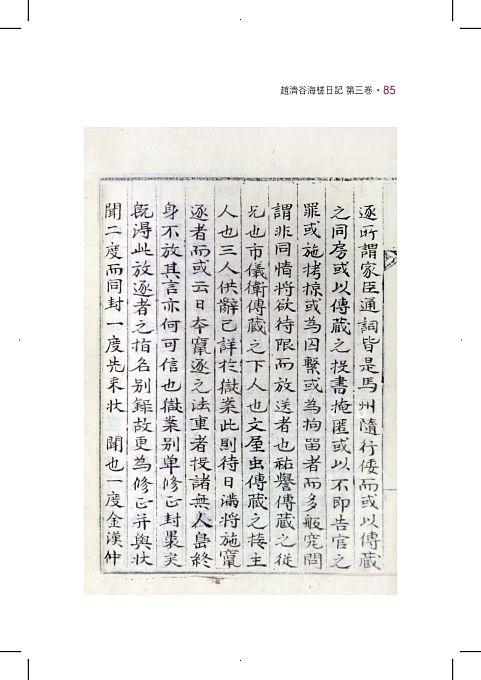 趙濟谷海槎日記 第三卷 • 85
逐所謂家臣通詞皆是馬州隨行倭而或以傳藏
之同房或以傳藏之投書掩匿或以不即告官之
罪或施拷掠或為囚繫或為拘留者而多般究問
謂非同情將欲待限而放送者也祐譽傳藏之從
兄也市儀衛傳藏之下人也文屋虫傳藏之接主
人也三人供辭已詳於獄案此則待日滿將施竄
逐者而或云日本竄逐之法重者投諸無人島終
身不放其言亦何可信也獄案別單修正封裹矣
旣淂此放逐者之指名別錄故更為修正并與狀
聞二度而同封一度先來狀 聞也一度金漢仲